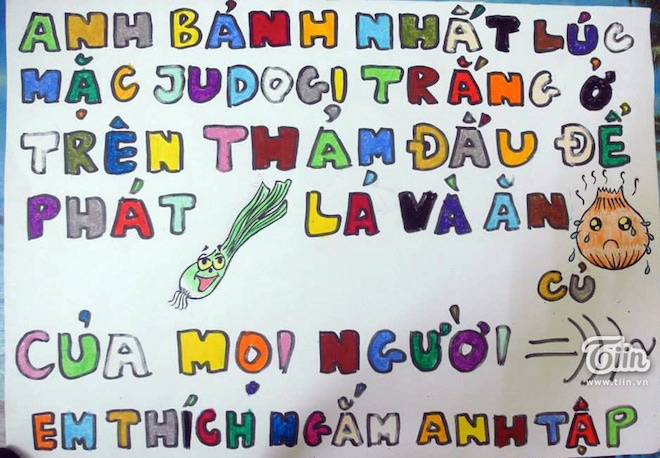 ANH BẢNH NHẤT LÚC
MẶC JUDOGI TRẮNG Ở
TRÊN THẢM ĐẤU ĐỂ
PHÁT LÁ VÀ ĂN
CỦ
CỦA MỌI NGƯỜI =)))~
EM THÍCH NGẮM ANH TẬP
Tiin
www.tiin.vn